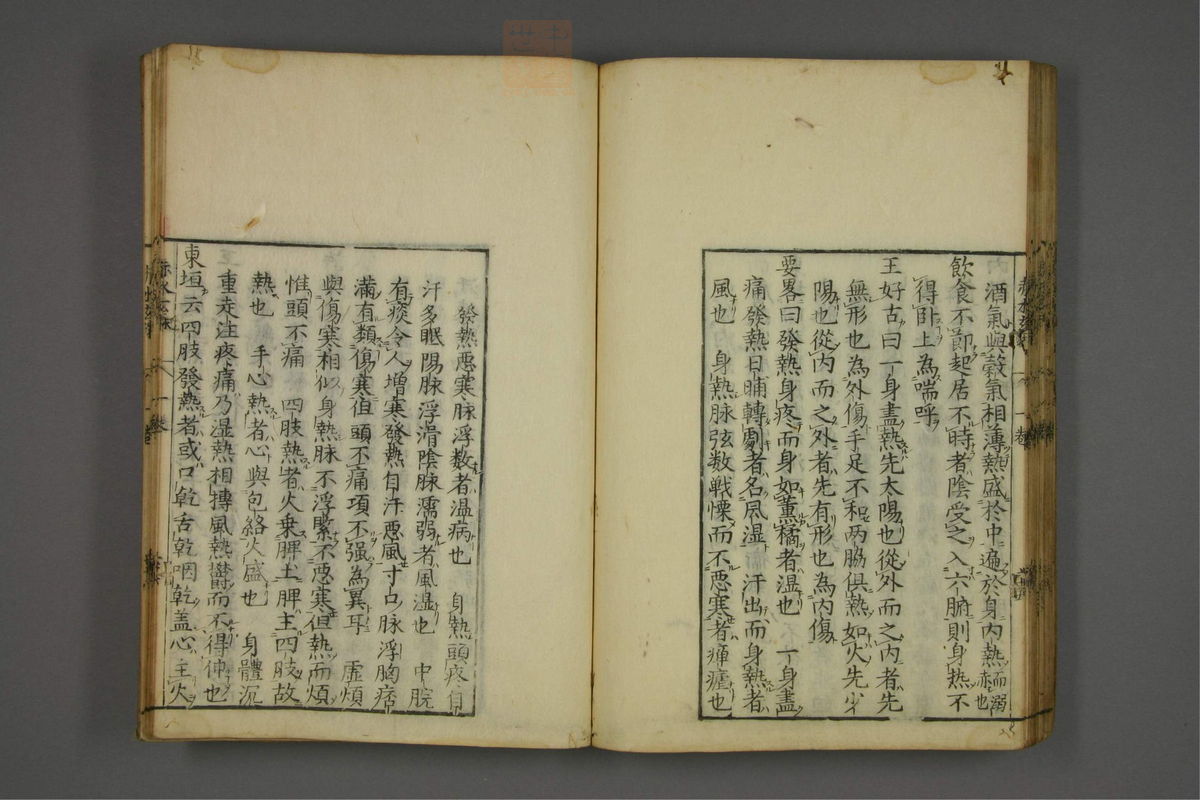 酒氣與穀氣相薄熱盛於中遍於身内熱而溺赤也
飲食不節起居不時者陰受之入六腑則身热不
得卧上為喘呼
王好古曰一身盡熱先太陽也從外而之内者先
無形也為外傷手足不和两脇俱熱如火先少
陽也從内而之外者先有形也為内傷
要畧曰發熱身疼而身如薰橘者湿也 一身盡
痛發熱日晡轉劇者名风湿 汗出而身熱者
風也 身熱脉弦数戦慄而不恶寒者瘅瘧也
發熱恶寒脉浮数者温病也 身熱頭疼自
汗多眠陽脉浮滑陰脉濡弱者風湿也 中脘
有痰令人增寒發熱自汗恶風寸口脉浮胸痞
滿有類傷寒但頭不痛項不强為異耳 虛煩
與傷寒相似身熱脉不浮緊不恶寒但熱而煩
惟頭不痛 四肢熱者火乗脾土脾主四肢故
熱也 手心熱者心與包絡火盛也 身體沉
重走注疼痛乃湿熱相搏風熱欝而不得伸也
東垣云四肢發熱者或口乾舌乾咽乾盖心主火